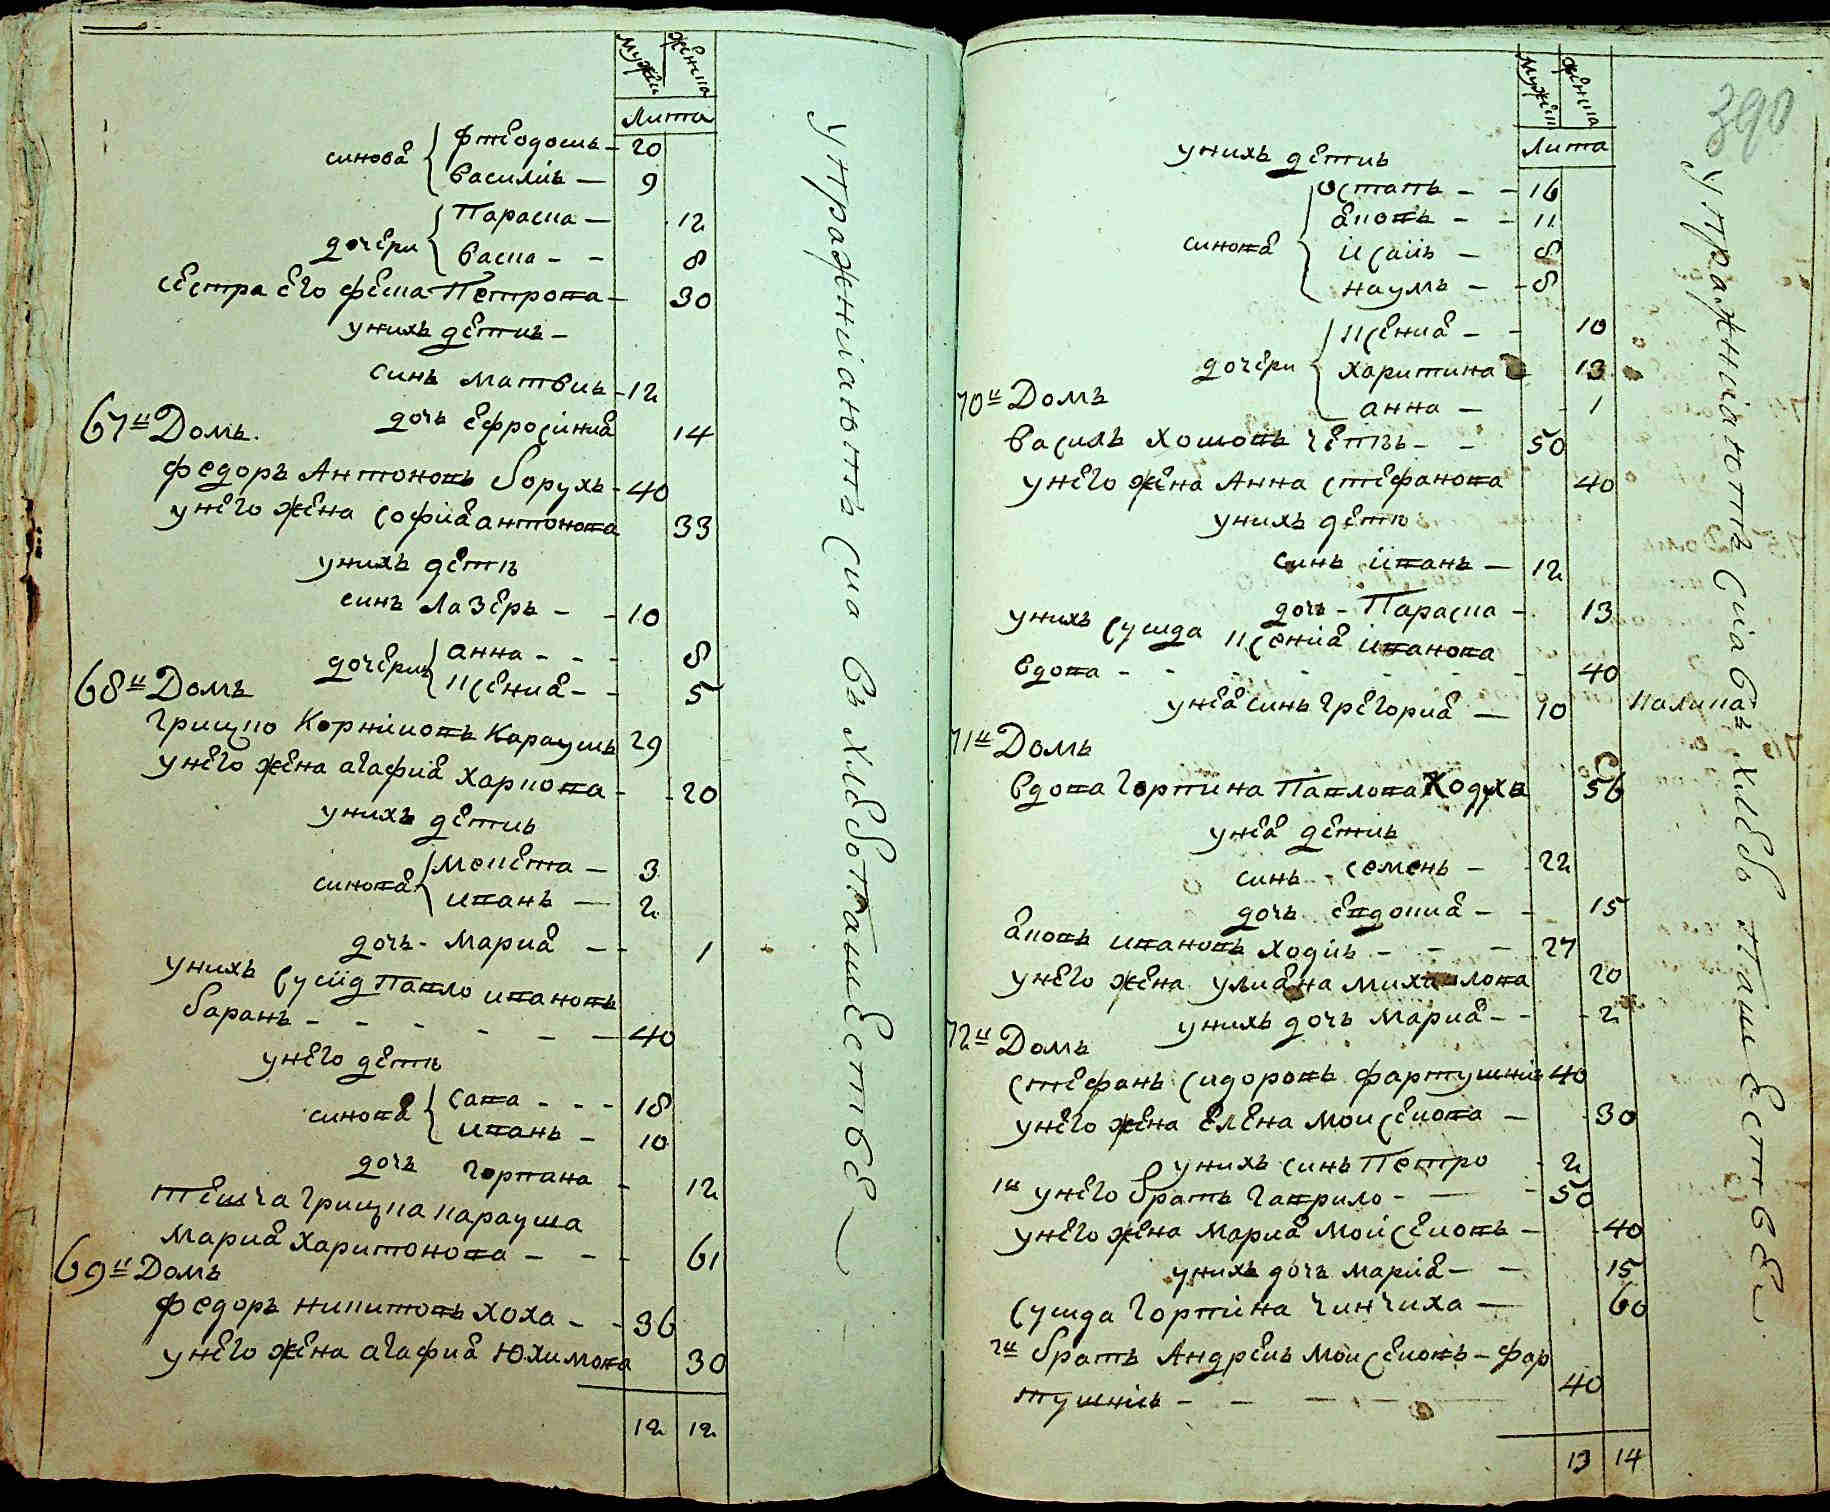 мужеи женпа
лита
синове { фтеодосиь – 20
василиь – 9
дочери { Параспа – 12
васпа – – 8
сестра его феспа Петрова – 30
унихъ детиь –
синъ матвиь – 12
67и Домъ.
дочъ ефросиниа 14
федоръ Антоновъ Борухъ – 40
унего жена софиа антонова 33
унихъ дети
синъ Лазеръ – – 10
дочери { анна – – – 8
ксениа – – 5
68и Домъ
Грицко Корниковъ Караушъ 29
унего жена агафиа харкова – – 20
унихъ детиь
синова { микета – 3
иванъ – 2
дочъ – мариа – – 1
унихъ сусид Павло ивановъ
баранъ – – – – – – 40
унего дети
синова { сава – – – 18
иванъ – 10
дочъ горпана – 12
тешча грицка карауша
мариа харитонова – – – 61
69и Домъ
федоръ никитовъ хоха – – 36
унего жена агафиа Юхимова 30
12 12
упражнiаютъ сиа въ хлебопашестве
390
мужеи женпа
лита
унихъ детиь
синова { остапъ – – 16
аковъ – – 11
исаиь – 8
наумъ – – 8
дочери { ксениа – – 10
харитина – 13
анна – 1
70и Домъ
василь хошовъ четвъ – – 50
унего жена Анна стефанова 40
унихъ дети
синъ иванъ – 12
дочъ – Параспа – 13
унихъ сушда ксениа иванова
вдова – – – – – – 40
унеа синъ грегориа – 10 калика
71и Домъ
вдова горпина Павлова Ходуха 56
унеа детиь
синъ – семенъ – 22
дочъ евдокиа – – 15
аковъ ивановъ ходиь – – – 27
унего жена улиана михаилова 20
унихъ дочъ мариа – – – 2
72и Домъ
стефанъ сидоровъ фартушниь 40
унего жена елена моисеиова – 30
унихъ синъ Петро – 2
1и унего братъ гаврило – – – 50
унего жена мариа моисеиовъ – 40
унихъ дочъ мариа – – 15
сушда горпина чинчиха – 60
2и братъ Андреиь моисеиовъ – фар
тушниь – – – – – 40
13 14
упражнiаютъ сиа въ хлебопашестве